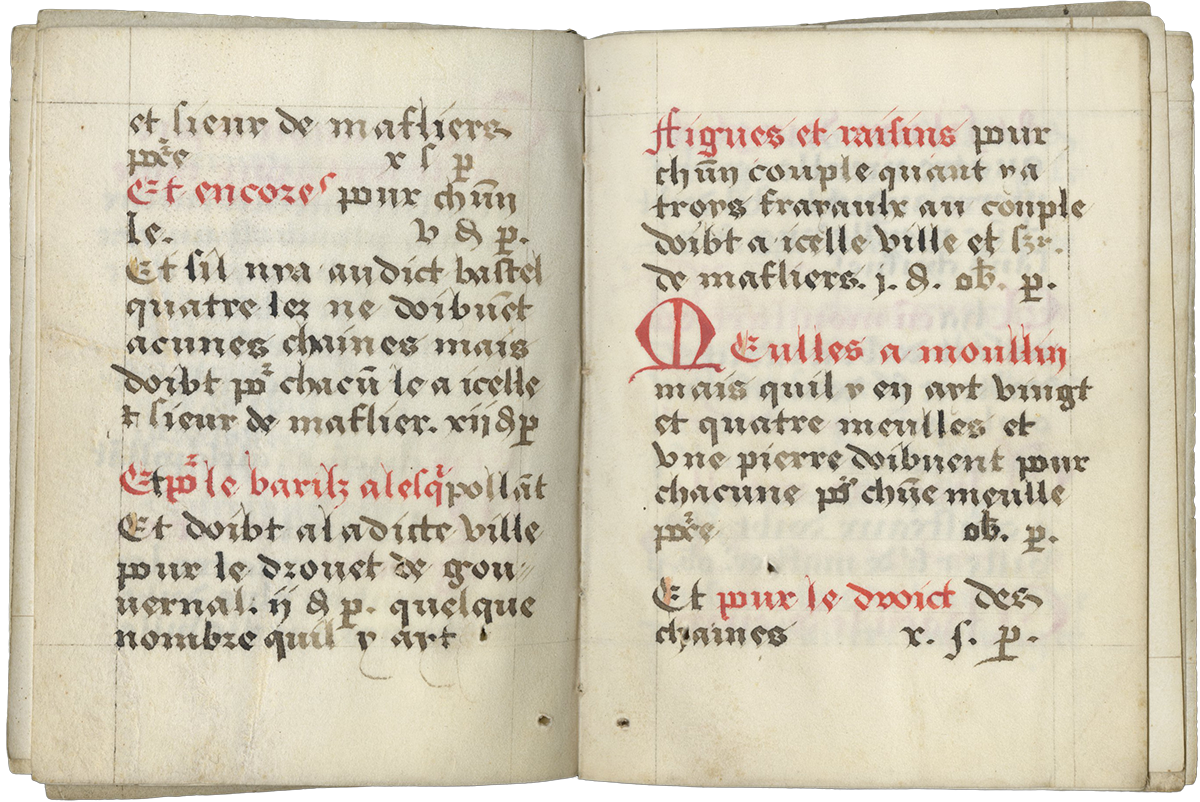 et sieur de mafliers
po͛re x s p
Et encores pour chūn
le. v d p.
Et sil nya audict bastel
quatre lez ne doibuēt
acunes chaines mais
doibt po͛ chacū le a icelle
et sieur de maflier. xii d p
Et po͛ le barilz alesq͛pollāt
Et doibt a ladicte ville
pour le drouet de gou-
uernal. ij d p. quelque
nombre quil y art
ffigues et raisins pour
chūn couple quant ya
troys frayaulx au couple
doibt a icelle ville et sr.
de mafliers. j. d. ob. p.
Meulles a moullin
mais quil y en art vingt
et quatre meulles et
vne pierre doibuent pour
chacune po͛ chūe meulle
po͛re ob. p.
Et pour le droict des
chaines x. s. p.